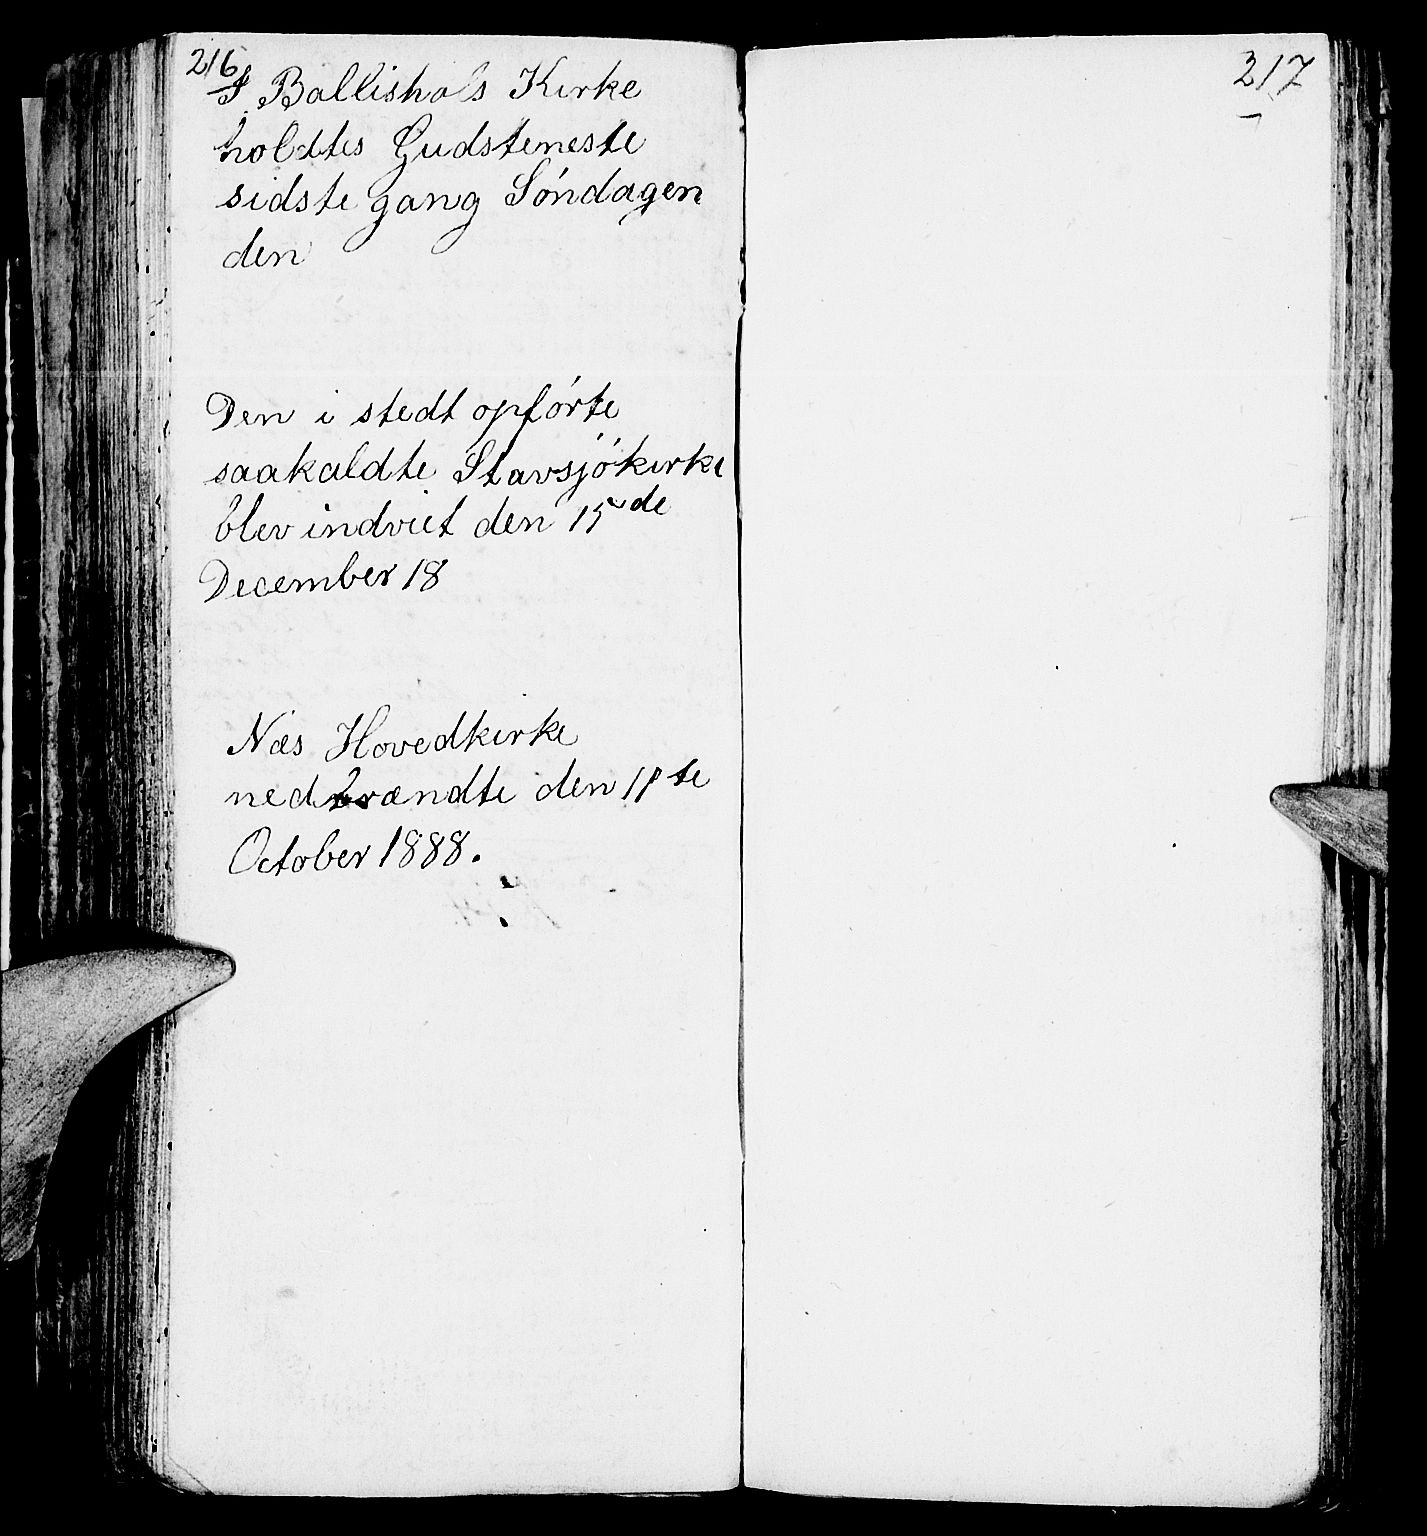 216
I Ballishols Kirke
holdtes Gudsteneste
sidste gang Søndagen
den
Den i stedt opførte
saakaldte Stavsjøkirke
blev indviet den 15de
December 18
Næs Hovedkirke
nedbrændte den
October 1888.
217